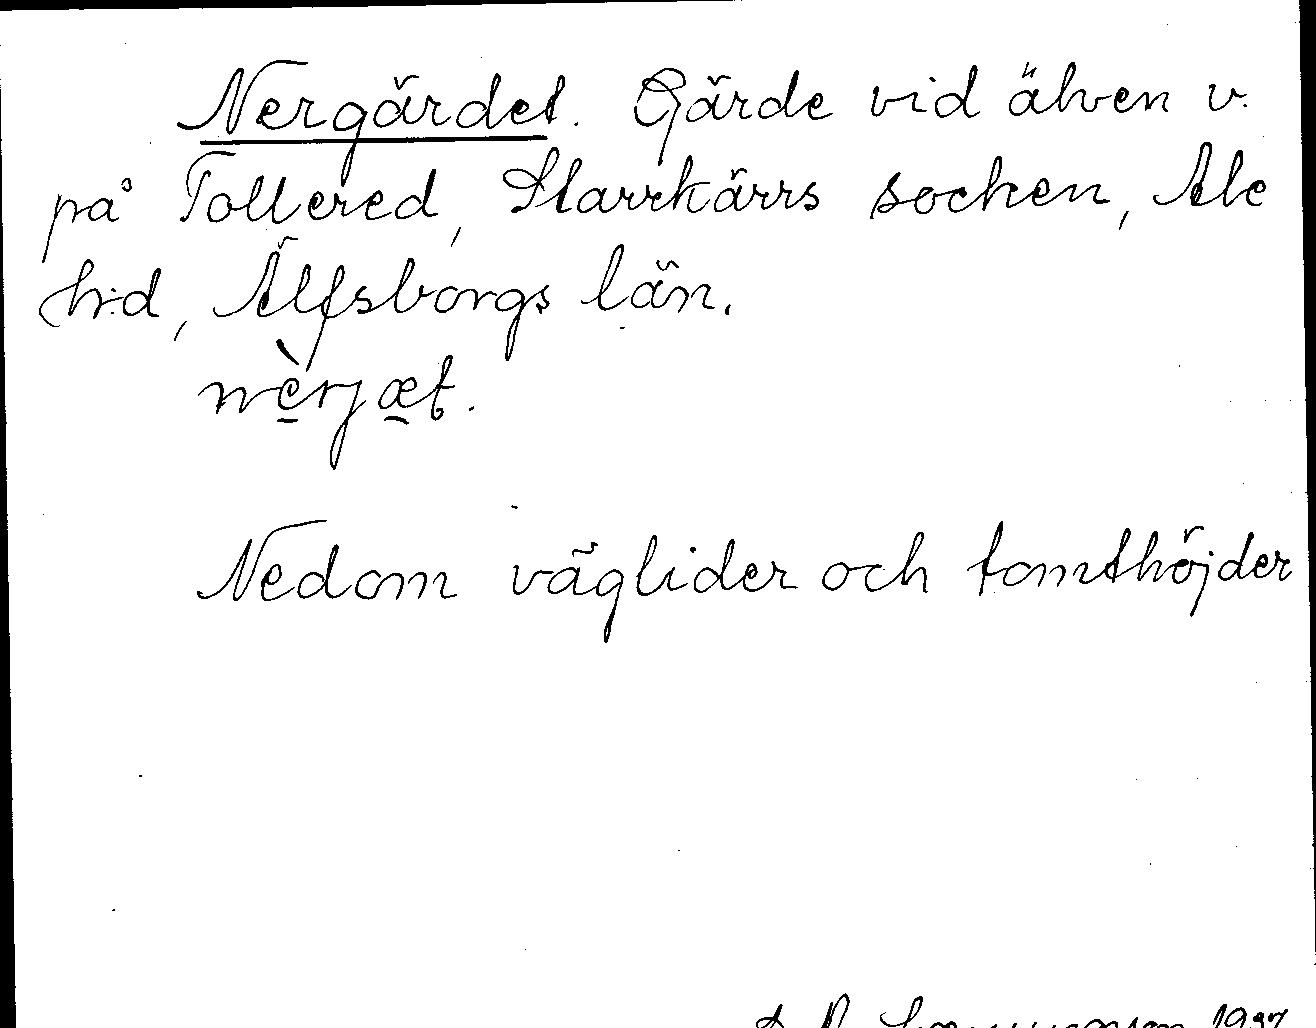 Nergärdet. Gärde vid älven v.
på Tollered, Starrkärrs socken, Ale
h:d, Älfsborgs län.
nè̠rjæ̠t.
Nedom väglider och tomthöjder